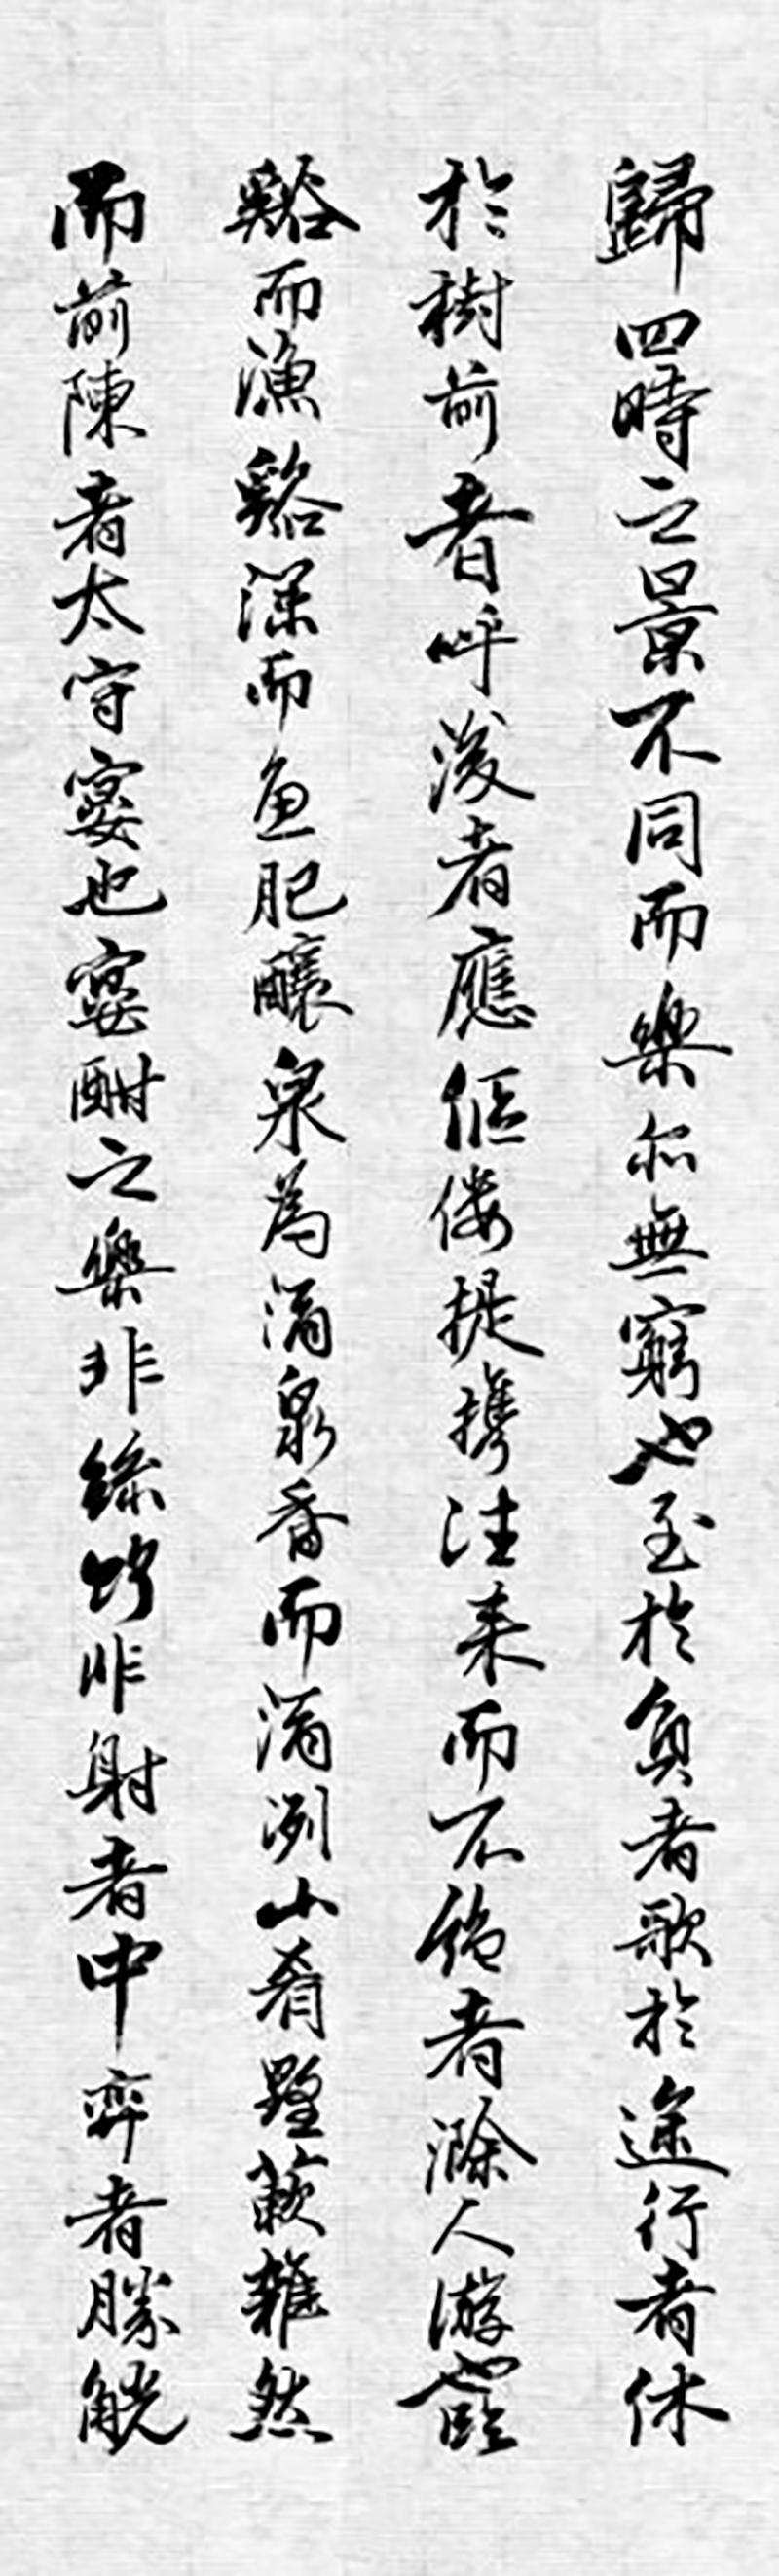 歸四時之景不同而樂亦無窮也至於負者歌於途行者休
於樹前者呼後者應傴僂提攜往来而不絶者滁人游也臨
谿而漁谿深而魚肥釀泉為酒泉香而酒洌山肴野蔌雜然
而前陳者太守宴也宴酣之樂非絲竹非射者中弈者勝觥